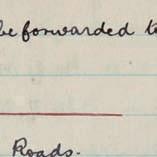 be forwarded to
Roads.